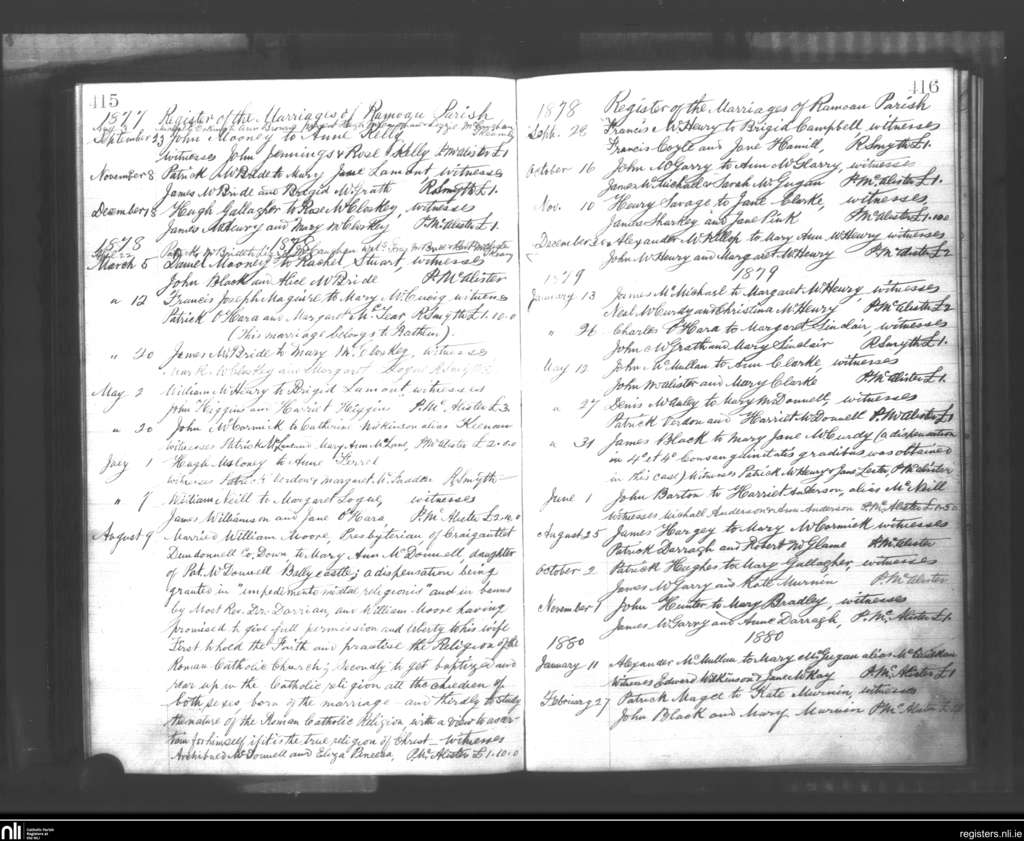 115
1877 Register of the Marriages of Ramoan Parish
September 23 John Mooney to Anne Kelly
witnesses John Jennings & Rose Kelly P McAlister £1
November 8 Patrick McBride to Mary Jane Lamont witnesses
James McBride and Brigid McGrath R Smyth £1.
December 18 Hugh Gallagher to Rose McCloskey, witnesses
James Asbeury and Mary McCloskey P McAlister £1.
1878 1878
April 22
March 5 Daniel Mooney to Rachel Stuart, witnesses
John Black and Alice McBride P McAlister
" 12 Francis Joseph Maguire to Mary McCuaig witness
Patrick O'Hara and Margaret McLear R Smyth £1.10.0
(This marriage belongs to Rathlin).
" 20 James McBride to Mary McCloskey, witnesses
Mark McCloskey and Margaret Logue R Smyth
May 2 William McHenry to Brigid Lamont witnesses
John Higgins and Harriet Higgins P. McAlister £3
" 20 John McCormick to Catherine Wilkinson alias Keenan
witnesses Patrick and Mary Ann McLane, P McAlister £2.0.0
July 1 Hugh Maloney to Anne
witnesses Patrick Verdon & Margaret McFadden R Smyth
" 7 William Neill to Margaret Logue, witnesses
James Williamson and Jane O'Hara P. McAlister £2.10.0
August 9 Married William Moore, Presbyterian of Craigantlet
Dundonnell Co. Down to Mary Ann McDonnell, daughter
of Pat. McDonnell Ballycastle; a dispensation being
granted in "impedimento mixtae religionis" and in banns
by Most Rev. Dr. Dorrian, and William Moore having
promised to give full permission and liberty to his wife
First to hold the Faith and practise the Religion of the
Roman Catholic Church; Secondly to get baptized and
rear up in the Catholic religion all the children of
both sexes born of the marriage and thirdly to study
the nature of the Roman Catholic Religion with a view to ascer-
tain for himself if it is the true religion of Christ — witnesses
Archibald McDonnell and Eliza P. McAlister £1.10.0
116
1878 Register of the Marriages of Ramoan Parish
Septb. 28 Francis McHenry to Brigid Campbell witnesses
Francis Coyle and Jane Hamill, R Smyth £1.
October 16 John McGarry to Ann McHarry, witnesses
James McMichall & Sarah McGugan P. McAlister £1.
Nov. 10 Henry Savage to Jane Clarke, witnesses,
James Sharkey and Jane Pink P McAlister £1.10.0
December Alexander McKillop to Mary Ann McHenry witnesses
John McHenry and Margaret McHenry P. McAlister £2
1879 1879
January 13 James McMichael to Margaret McHenry, witnesses
Neal McCurdy and Christina McHenry P. McAlister £2
" 26 Charles O'Hara to Margaret Sinclair, witnesses
John McGrath and Mary Sinclair R Smyth £1.
May 12 John McMullan to Ann Clarke, witnesses
John McAlister and Mary Clarke P. McAlister £1.
" 27 Denis McAuley to Mary McDonnell, witnesses
Patrick Verdon and Harriet McDonnell P. McAlister £1
" 31 James Black to Mary Jane McCurdy (a dispensation
in 4o et 4o Consanguinitatis gradibus was obtained
in this case) Witnesses Patrick McHenry & Jane P McAlister
June 1 John Barton to Harriet Anderson, alias McNeill
Witnesses Michall Anderson & Ann Anderson P. McAlister £1.5.0
August 25 James Hargey to Mary McCormick witnesses
Patrick Darragh and Robert McGlame P. McAlister
October 2 Patrick Hughes to Mary Gallagher, witnesses
James McGarry and Kate Murnin P. McAlister
November 1 John Hunter to Mary Bradley, witnesses
James McGarry and Anne Darragh, P. McAlister £1.
1880 1880
January 11 Alexander McMullan to Mary McGugan alias
Witnesses Edward Wilkinson & Jane McKay P. McAlister £1
February 27 Patrick Magee to Kate Murnin, witnesses
John Black and Mary Murnin P McAlister
nli Catholic Parish
Registers at
the NLI
registers.nli.ie